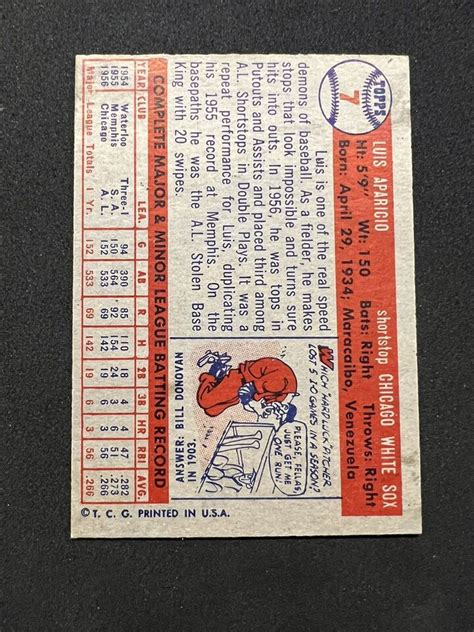 TOPPS
7
LUIS APARICIO
shortstop CHICAGO WHITE SOX
Ht: 5'9" Wt: 150 Bats: Right Throws: Right
Born: April 29, 1934; Maracaibo, Venezuela
Luis is one of the real speed
demons of baseball. As a fielder, he makes
stops that look impossible and turns sure
hits into outs. In 1956, he was tops in
Putouts and Assists and placed third among
A.L. Shortstops in Double Plays. It was a
repeat performance for Luis, duplicating
his 1955 record at Memphis. On the
basepaths he was the A.L. Stolen Base
King with 20 swipes.
WHICH "HARD LUCK" PITCHER
LOST 5 1-0 GAMES IN A SEASON?
PLEASE, FELLAS,
JUST GET ME
ONE RUN!
ANSWER: BILL DONOVAN
IN 1903.
COMPLETE MAJOR & MINOR LEAGUE BATTING RECORD
YEAR CLUB LEA. G AB R H 2B 3B HR RBI AVG.
1954 Waterloo Three-I 94 390 85 110 18 4 4 47 .282
1955 Memphis S. A. 150 564 92 154 24 3 6 51 .273
1956 Chicago A. L. 152 533 69 142 19 6 3 56 .266
Major League Totals 1 Yr. 152 533 69 142 19 6 3 56 .266
© T. C. G. PRINTED IN U.S.A.